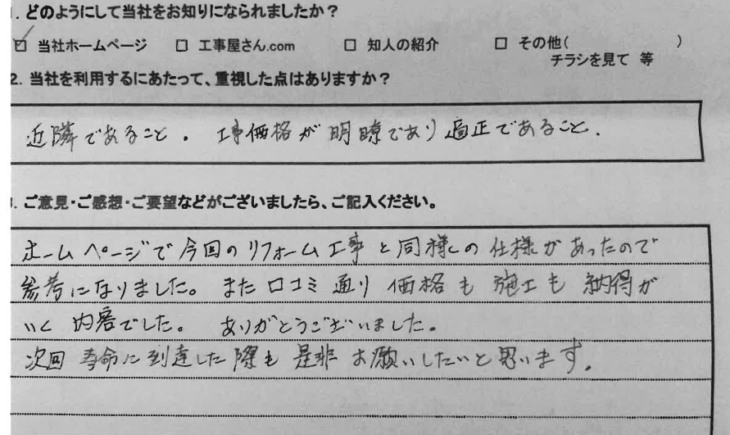 1. どのようにして当社をお知りになられましたか？
☑ 当社ホームページ □ 工事屋さん.com □ 知人の紹介 □ その他( )
チラシを見て 等
2. 当社を利用するにあたって、重視した点はありますか？
近隣であること. 工事価格が明瞭であり適正であること.
3. ご意見・ご感想・ご要望などがございましたら、ご記入ください。
ホームページで今回のリフォーム工事と同様の仕様があったので
参考になりました。また口コミ通り価格も施工も納得が
いく内容でした。ありがとうございました。
次回寿命に到達した際も是非お願いしたいと思います.